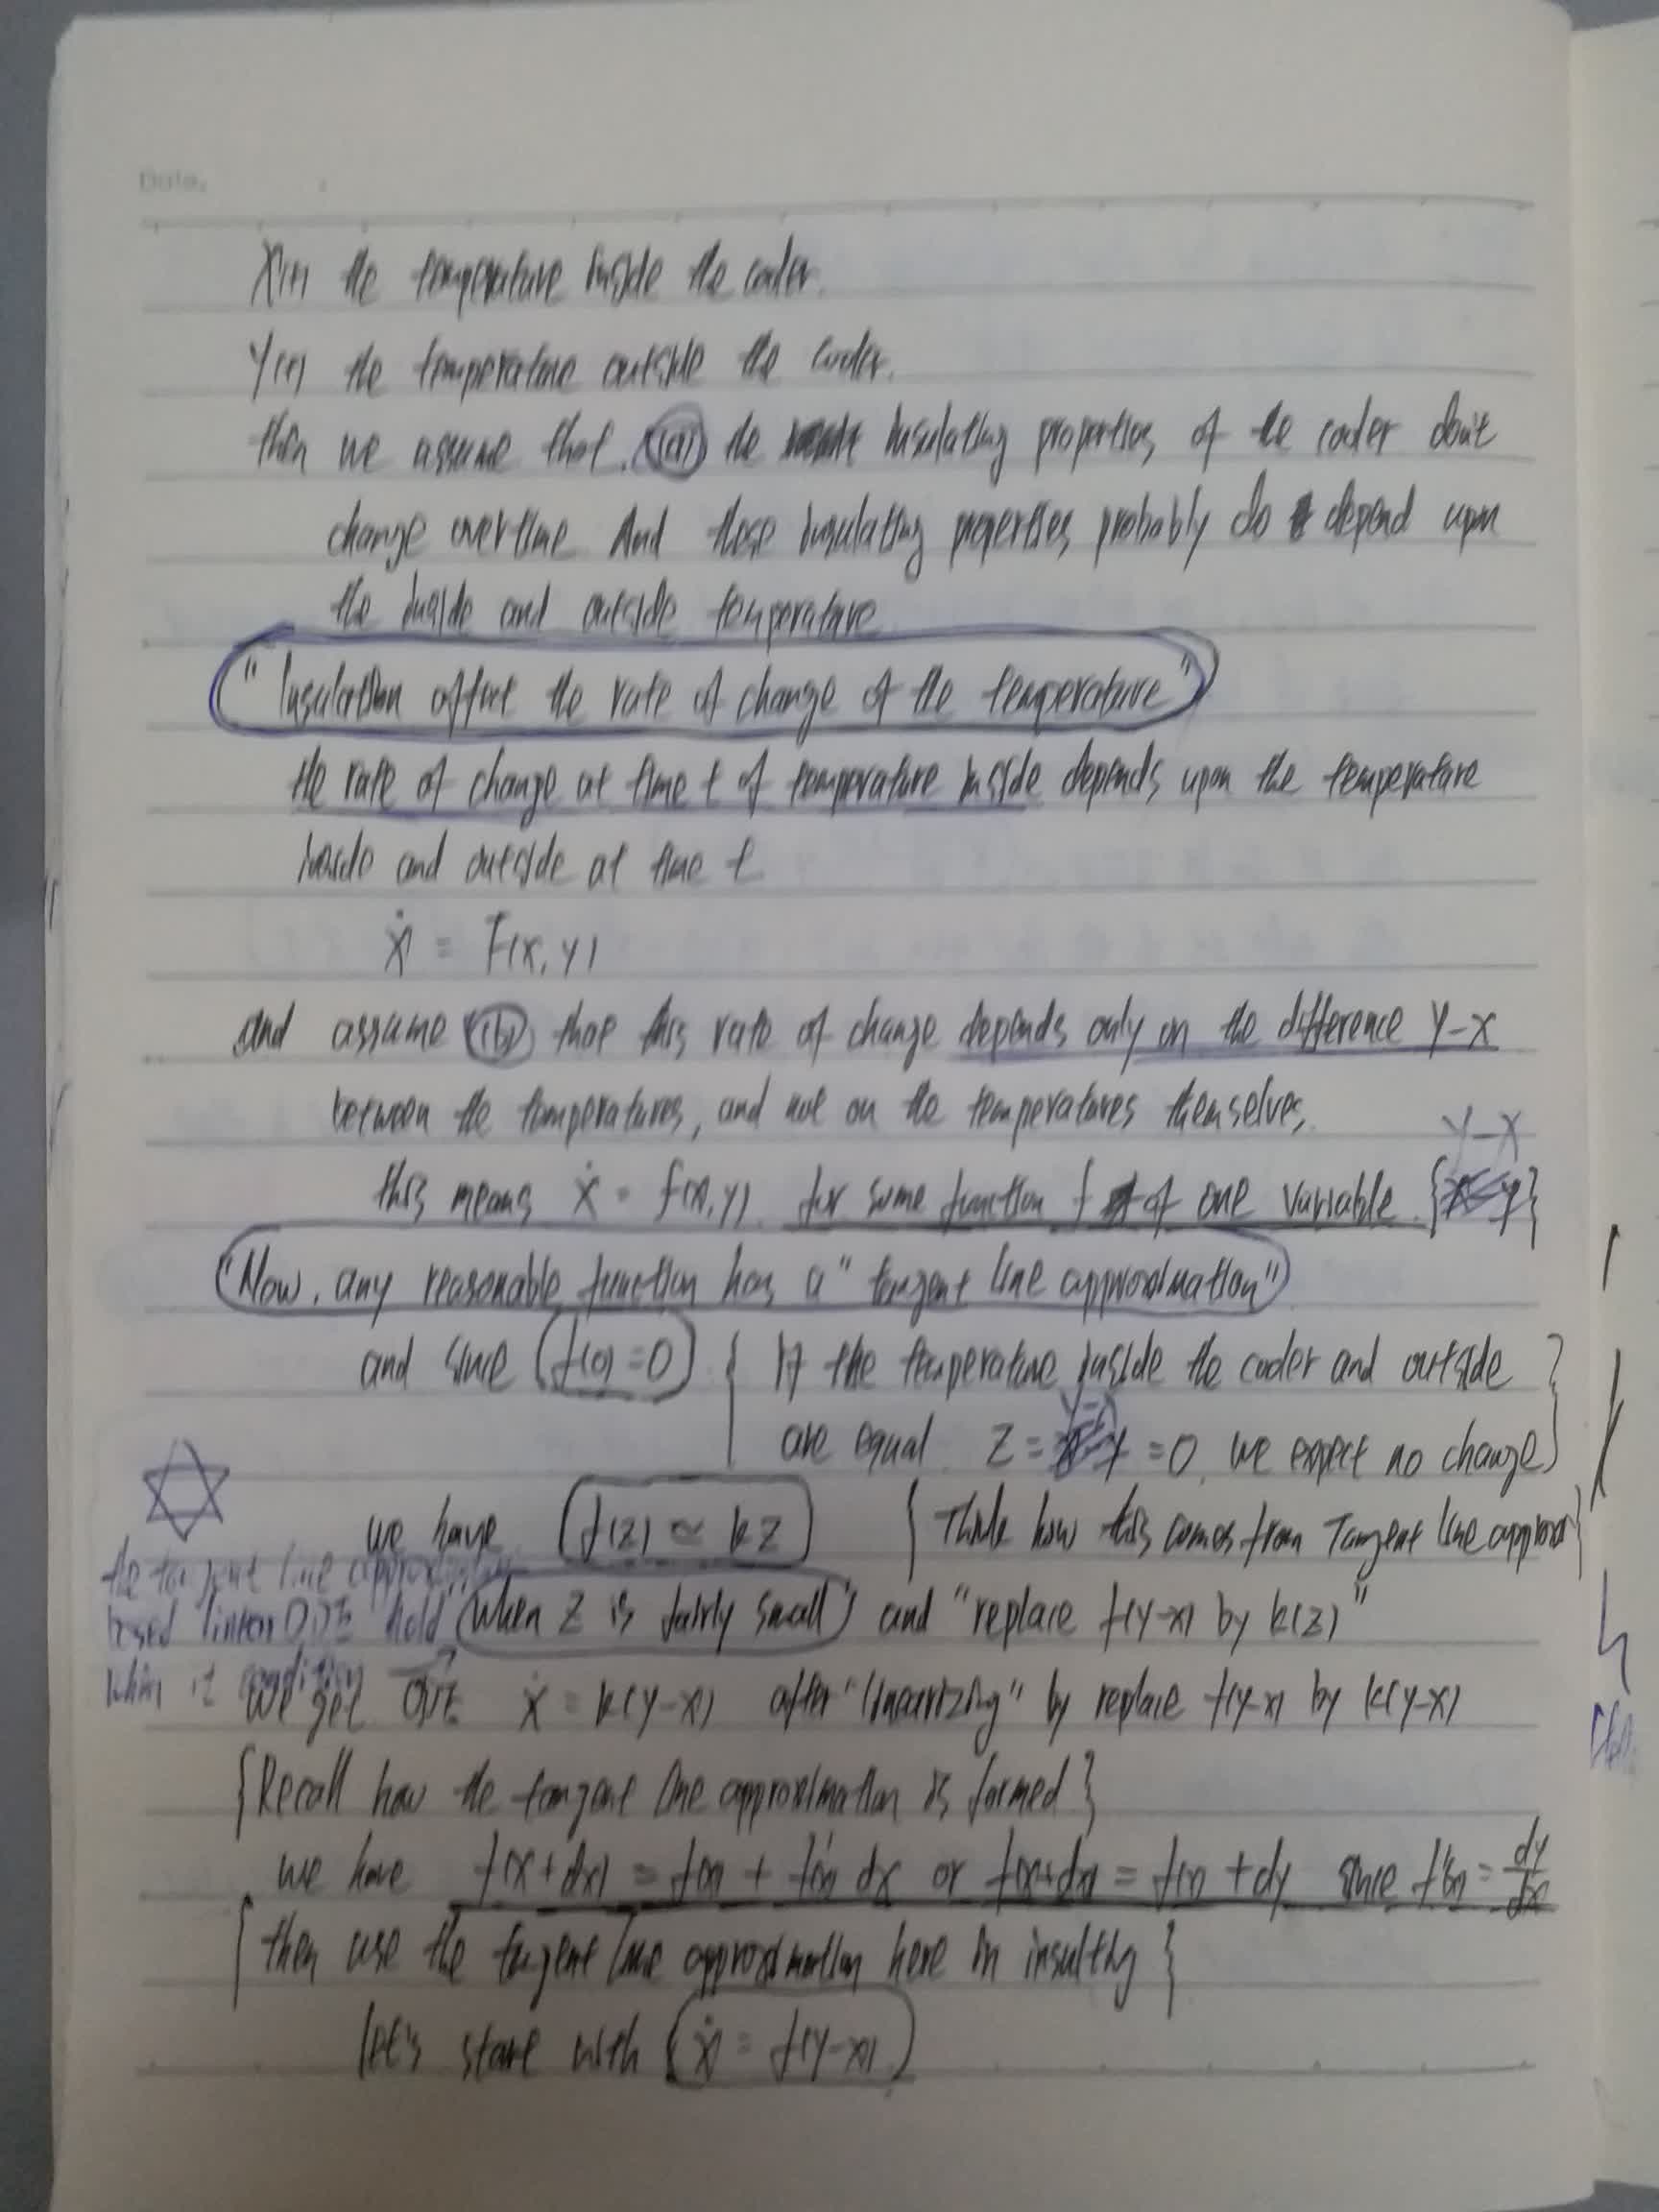 Date.
X(t) the temperature inside the cooler.
Y(t) the temperature outside the cooler.
then we assume that (a) the insulating properties of the cooler don't
change overtime And these insulating properties probably do depend upon
the inside and outside temperature
"Insulation affect the rate of change of the temperature"
the rate of change at time t of temperature inside depends upon the temperature
inside and outside at time t
ẋ = F(x, y)
and assume (b) that this rate of change depends only on the difference y-x
between the temperatures, and not on the temperatures themselves,
y-x
this means ẋ = f(x,y) for some function f of one variable {
"Now, any reasonable function has a "tangent line approximation"
and since f(0)=0 { If the temperature inside the cooler and outside
y-x
are equal z = =0, we expect no change }
we have f(z) ≃ kz { Think how this comes from Tangent line approx }
the tangent line approximation
based linear ODE hold
when it condition →
when z is fairly small and "replace f(y-x) by k(z)"
we get ODE ẋ = k(y-x) after "linearizing" by replace f(y-x) by k(y-x)
{Recall how the tangent line approximation is formed}
we have f(x+dx) = f(x) + f'(x) dx or f(x+dx) = f(x) + dy since f'(x) = dy/dx
{ then use the tangent line approximation here in insulting }
let's start with ẋ = f(y-x)